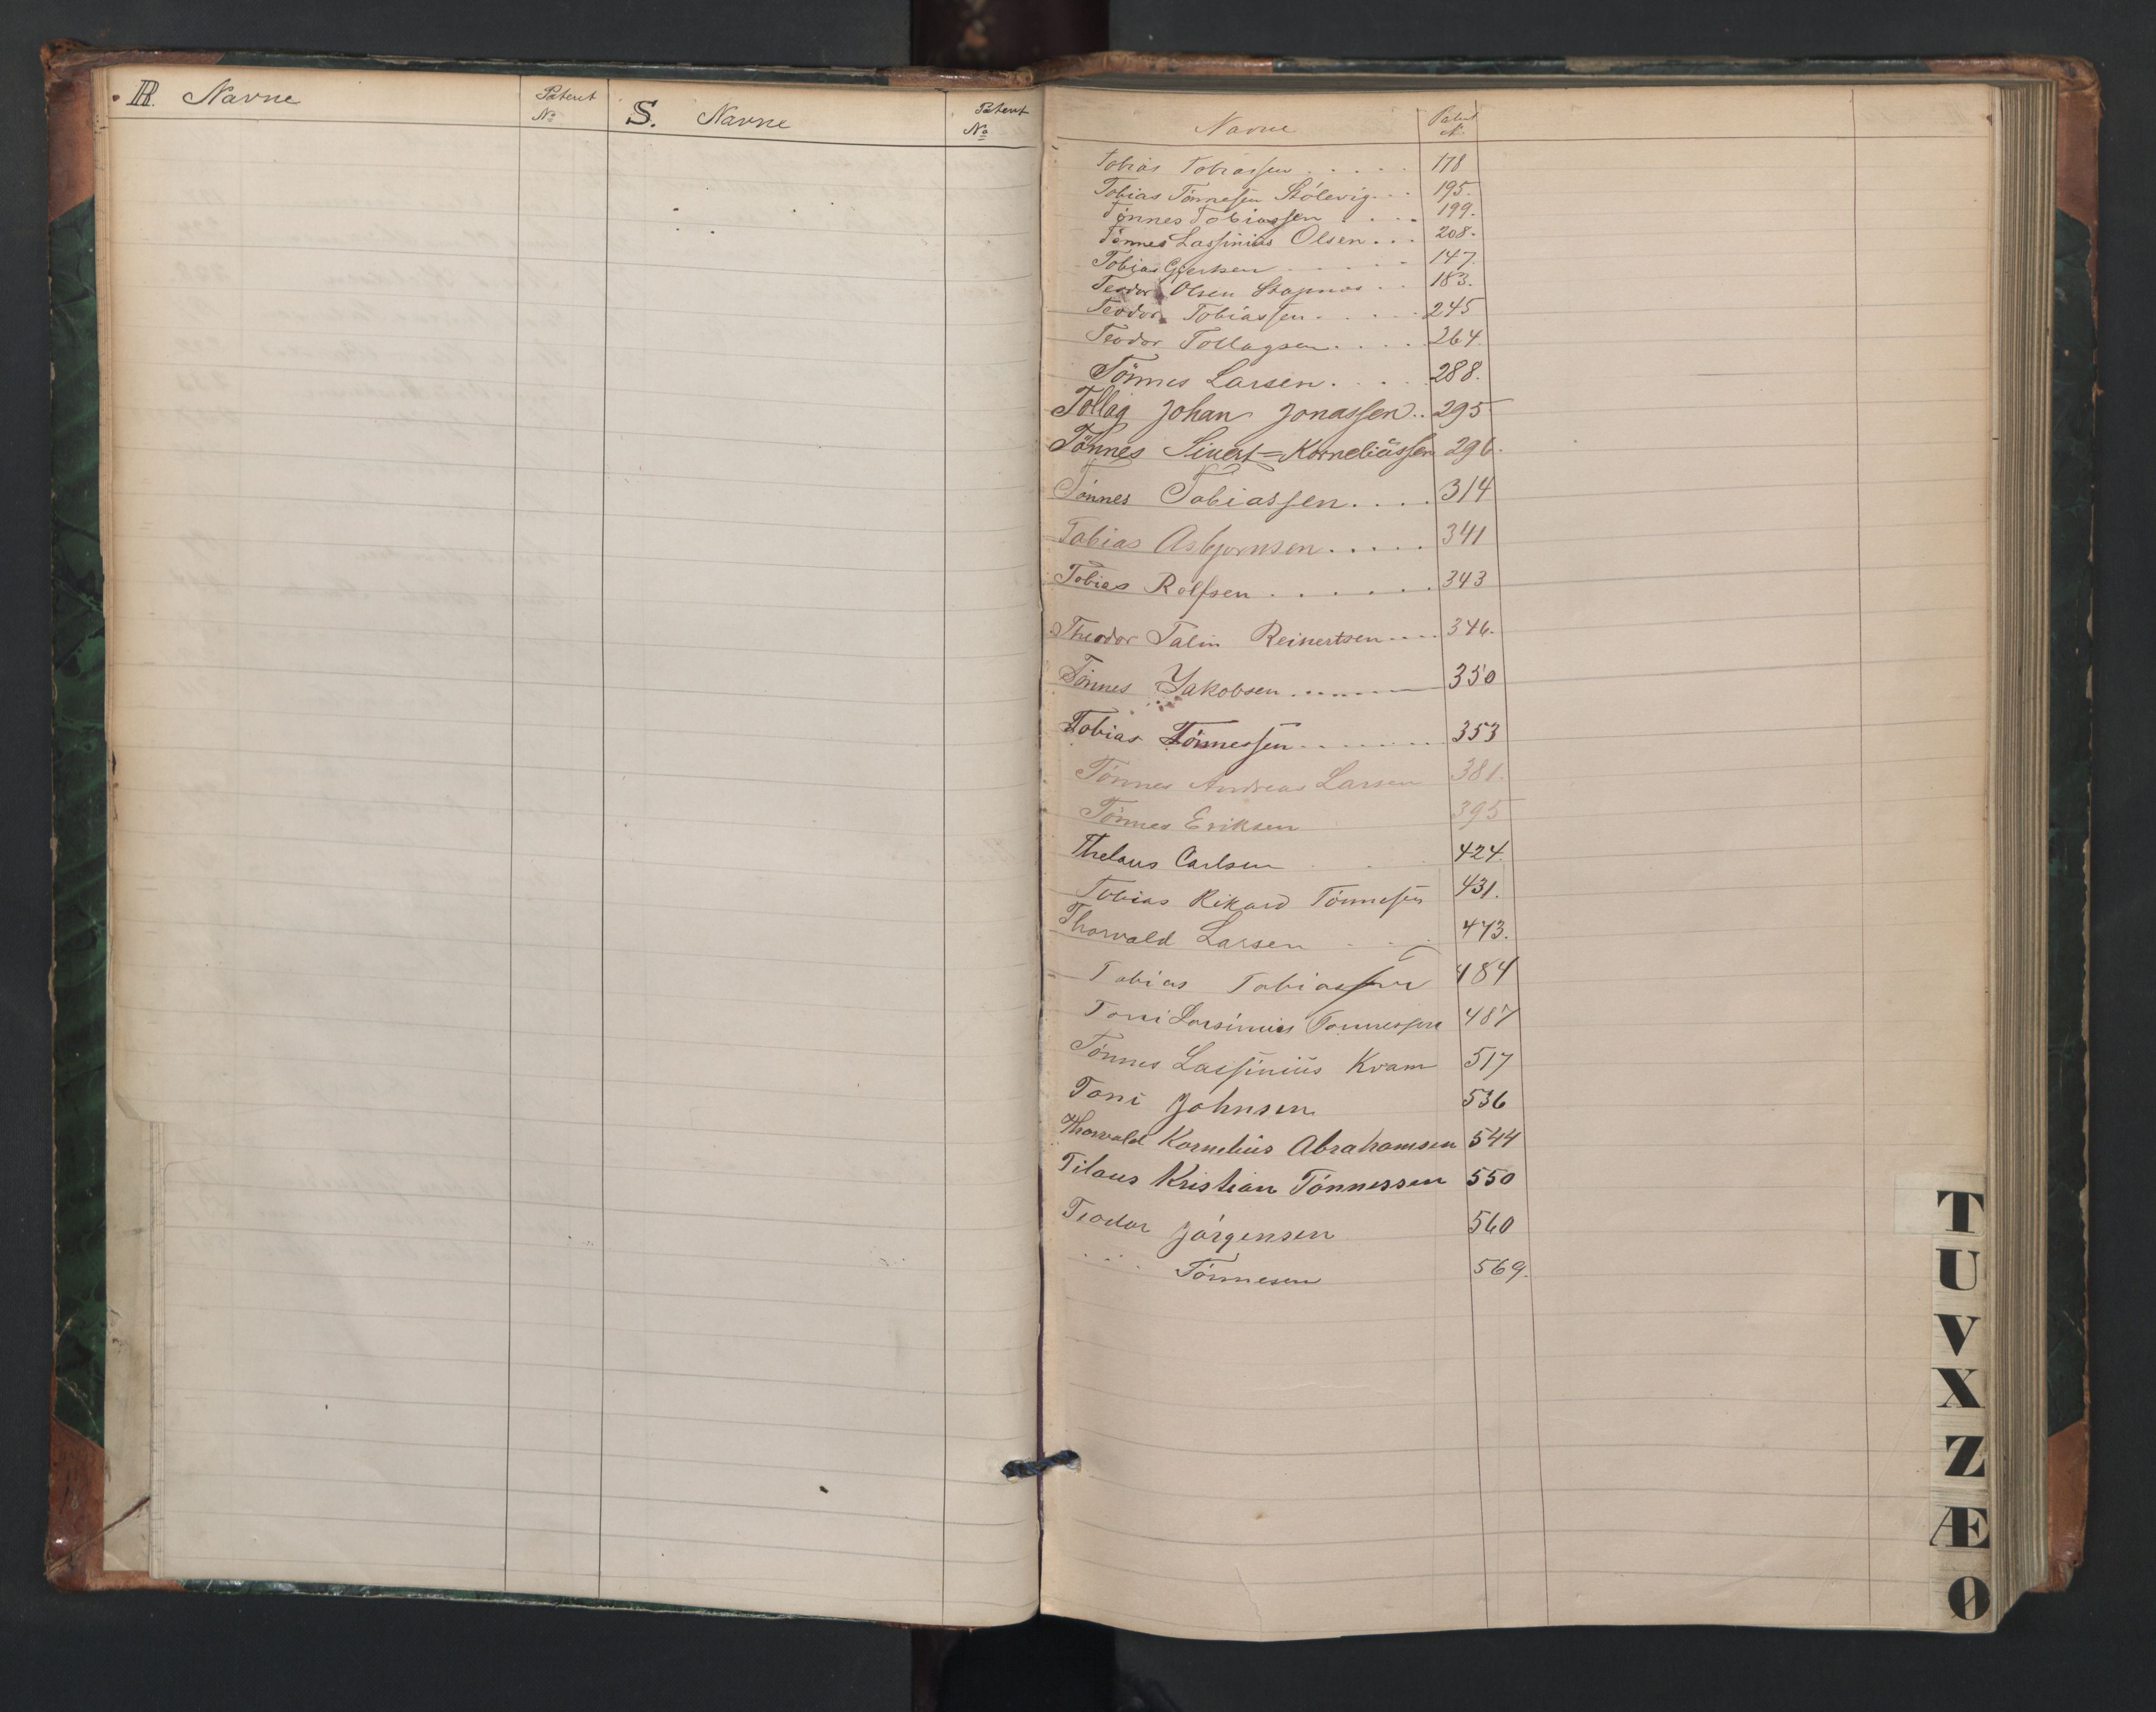 R. Navne
Patent
No
S. Navne
Patent
No
Navne
Patent
No
Tobias Tobiassen . . . . . 178
Tobias Tönnesen Stölevig . . 195.
Tönnes Tobiassen . . . . 199.
Tönnes Lassinius Olsen . . . 208.
Tobias Gjertsen . . . . . 147.
Teodor Olsen Stapnes . . 183.
Teodor Tobiassen . . . . . 245
Teodor Tollagsen . . . . . 264.
Tönnes Larsen . . . . . 288.
Tollag Johan Jonassen . . 295
Tönnes Sivert=Korneliussen 296.
Tönnes Tobiassen . . . . 314
Tobias Asbjornsen . . . . . 341
Tobias Rolfsen . . . . . . 343
Theodor Talin Reinertsen . . . . 346.
Tönnes Jakobsen . . . . . . 350
Tobias Tönnessen . . . . . . . 353
Tönnes Andreas Larsen 381.
Tönnes Eriksen 395
Thelaus Carlsen . . . 424.
Tobias Rikard Tönnesen 431.
Thorvald Larsen . . . 473.
Tobias Tobiassen 484
Toni Lassinius Tonnessen 487
Tönnes Lassinius Kvam 517
Toni Johnsen 536
Thorvald Kornelius Abrahamsen 544
Tilaus Kristian Tönnessen 550
Teodor Jörgensen 560
. . . Tönnesen 569.
T
U
V
X
Z
Æ
Ø